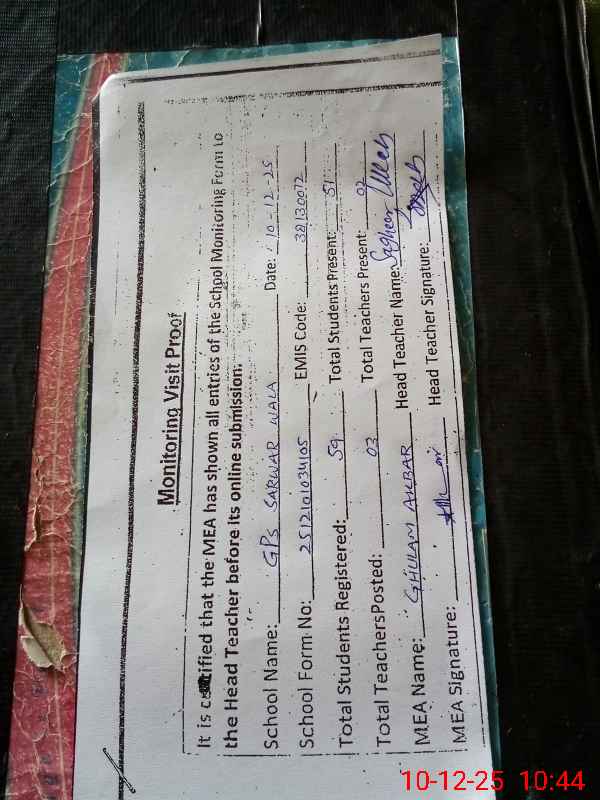 Monitoring Visit Proof
It is certified that the MEA has shown all entries of the School Monitoring Form to
the Head Teacher before its online submission.
School Name: GPS SARWAR WALA Date: 10-12-25
School Form No: 2512101034105 EMIS Code: 38130072
Total Students Registered: 59 Total Students Present: 51
Total TeachersPosted: 02 Total Teachers Present: 02
MEA Name: GHULAM AKBAR Head Teacher Name: Sagheer
MEA Signature: Head Teacher Signature:
10-12-25 10:44